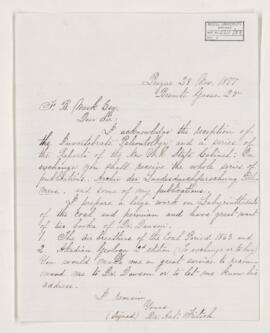 Prague 28 Nov. 1877
Brenntegasse 25
F. B. Meek Esq.
Dear Sir,
I acknowledge the reception of
the Invertebrate Paleontology and a series of
the Reports of the New York State Cabinet. In
exchange you shall receive the whole series of
publications. Archiv der Landesdurchforschung
and some of my publications.
I prepare a large work on Labyrinthodonts
of the Coal and Permian and have great want
of two books of Dr. Dawson:
1. The Air breathers of the Coal Period 1863 and
2. Acadian Geology 2d edition (in exchange or to buy)
You would make me an great service to recom-
mend me to Dr. Dawson or to let me know his
address.
I remain
Yours
(Signed) Dr. Ant. Fritsch